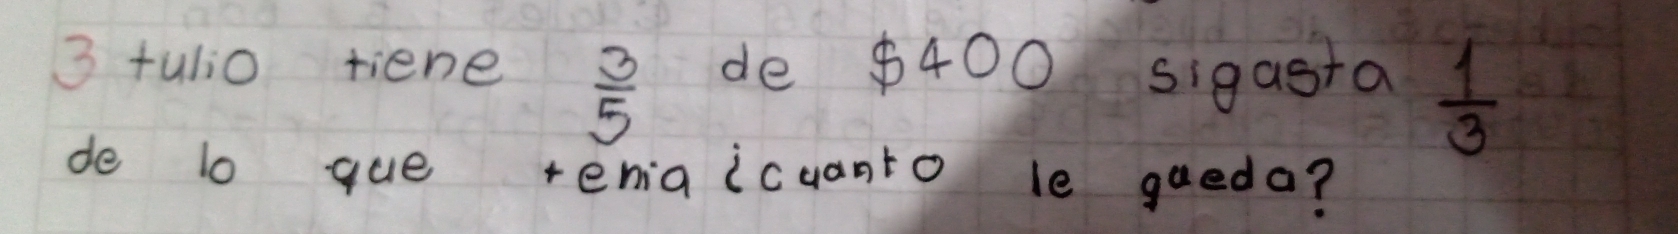 3 tulio tiene 3/5 de $400 si gasta 1/3
de lo que tenia ¿cuanto le queda?